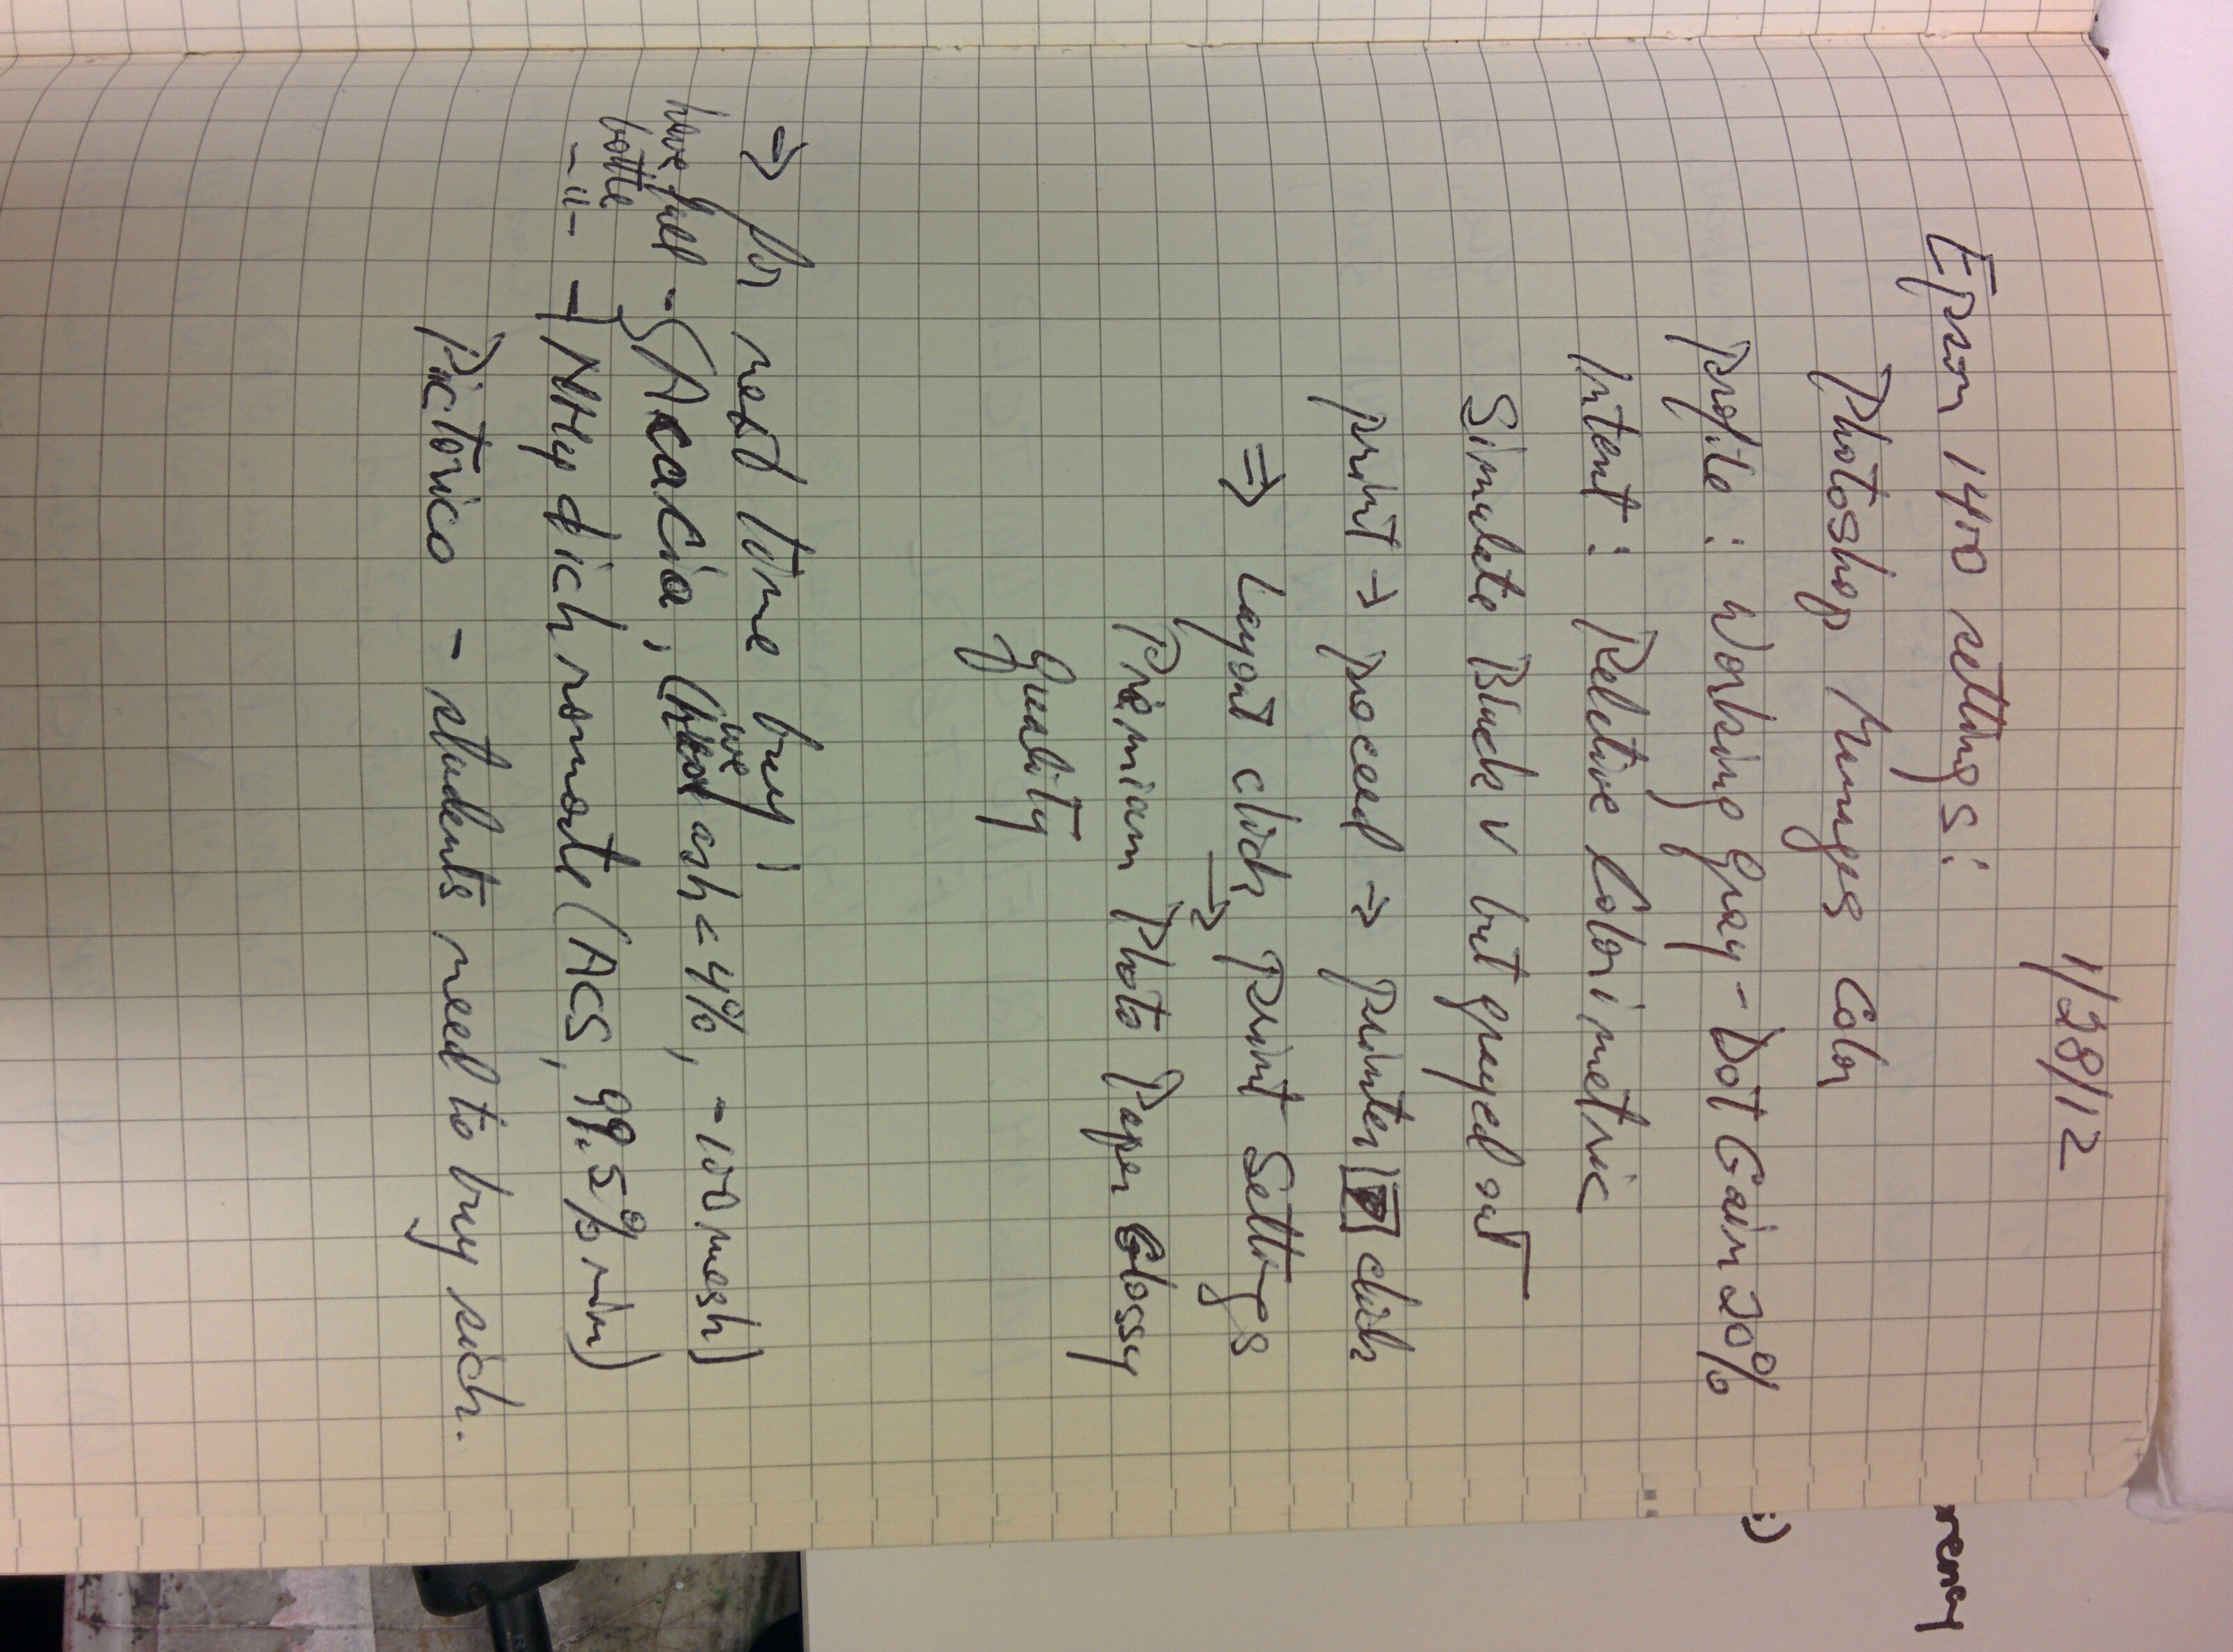 1/28/12
Epson 1410 settings:
Photoshop Manages Color
profile: Working Gray - Dot Gain 20%
Intent: Relative Colorimetric
Simulate Black v but grayed out
print → proceed → printer click
⇒ Layout click Print Settings
→
Premium Photo Paper Glossy
Quality
⇒ for next time buy:
have full - Acacia, (we have ash < 4%, -100 mesh)
bottle
-"- - NH4 dichromate (ACS, 99.5% min)
Pictorico - students need to buy such.
:)